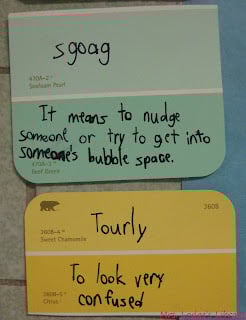 sgoag
470A-2
Seafoam Pearl
It means to nudge
someone or try to get into
someone's bubble space.
470A-3
Reef Green
360B
360B-4
Sweet Chamomile
Tourly
To look very
confused
360B-5
Citrus